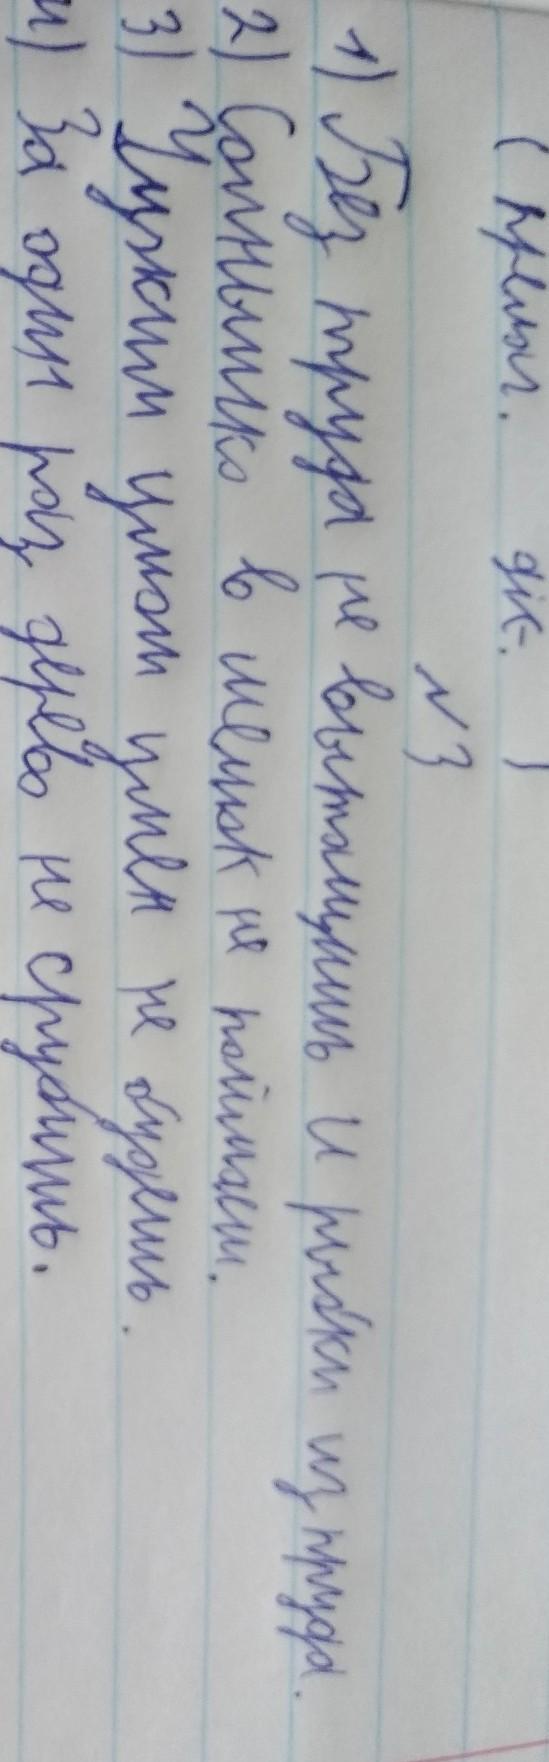 ( прямы. дік. )
N 3
1) Без труда не вытащишь и рыбки из пруда.
2) Солнышко в мешок не поймаеш.
3) Чужим умом умен не будешь.
4) За один раз дерево не срубишь.